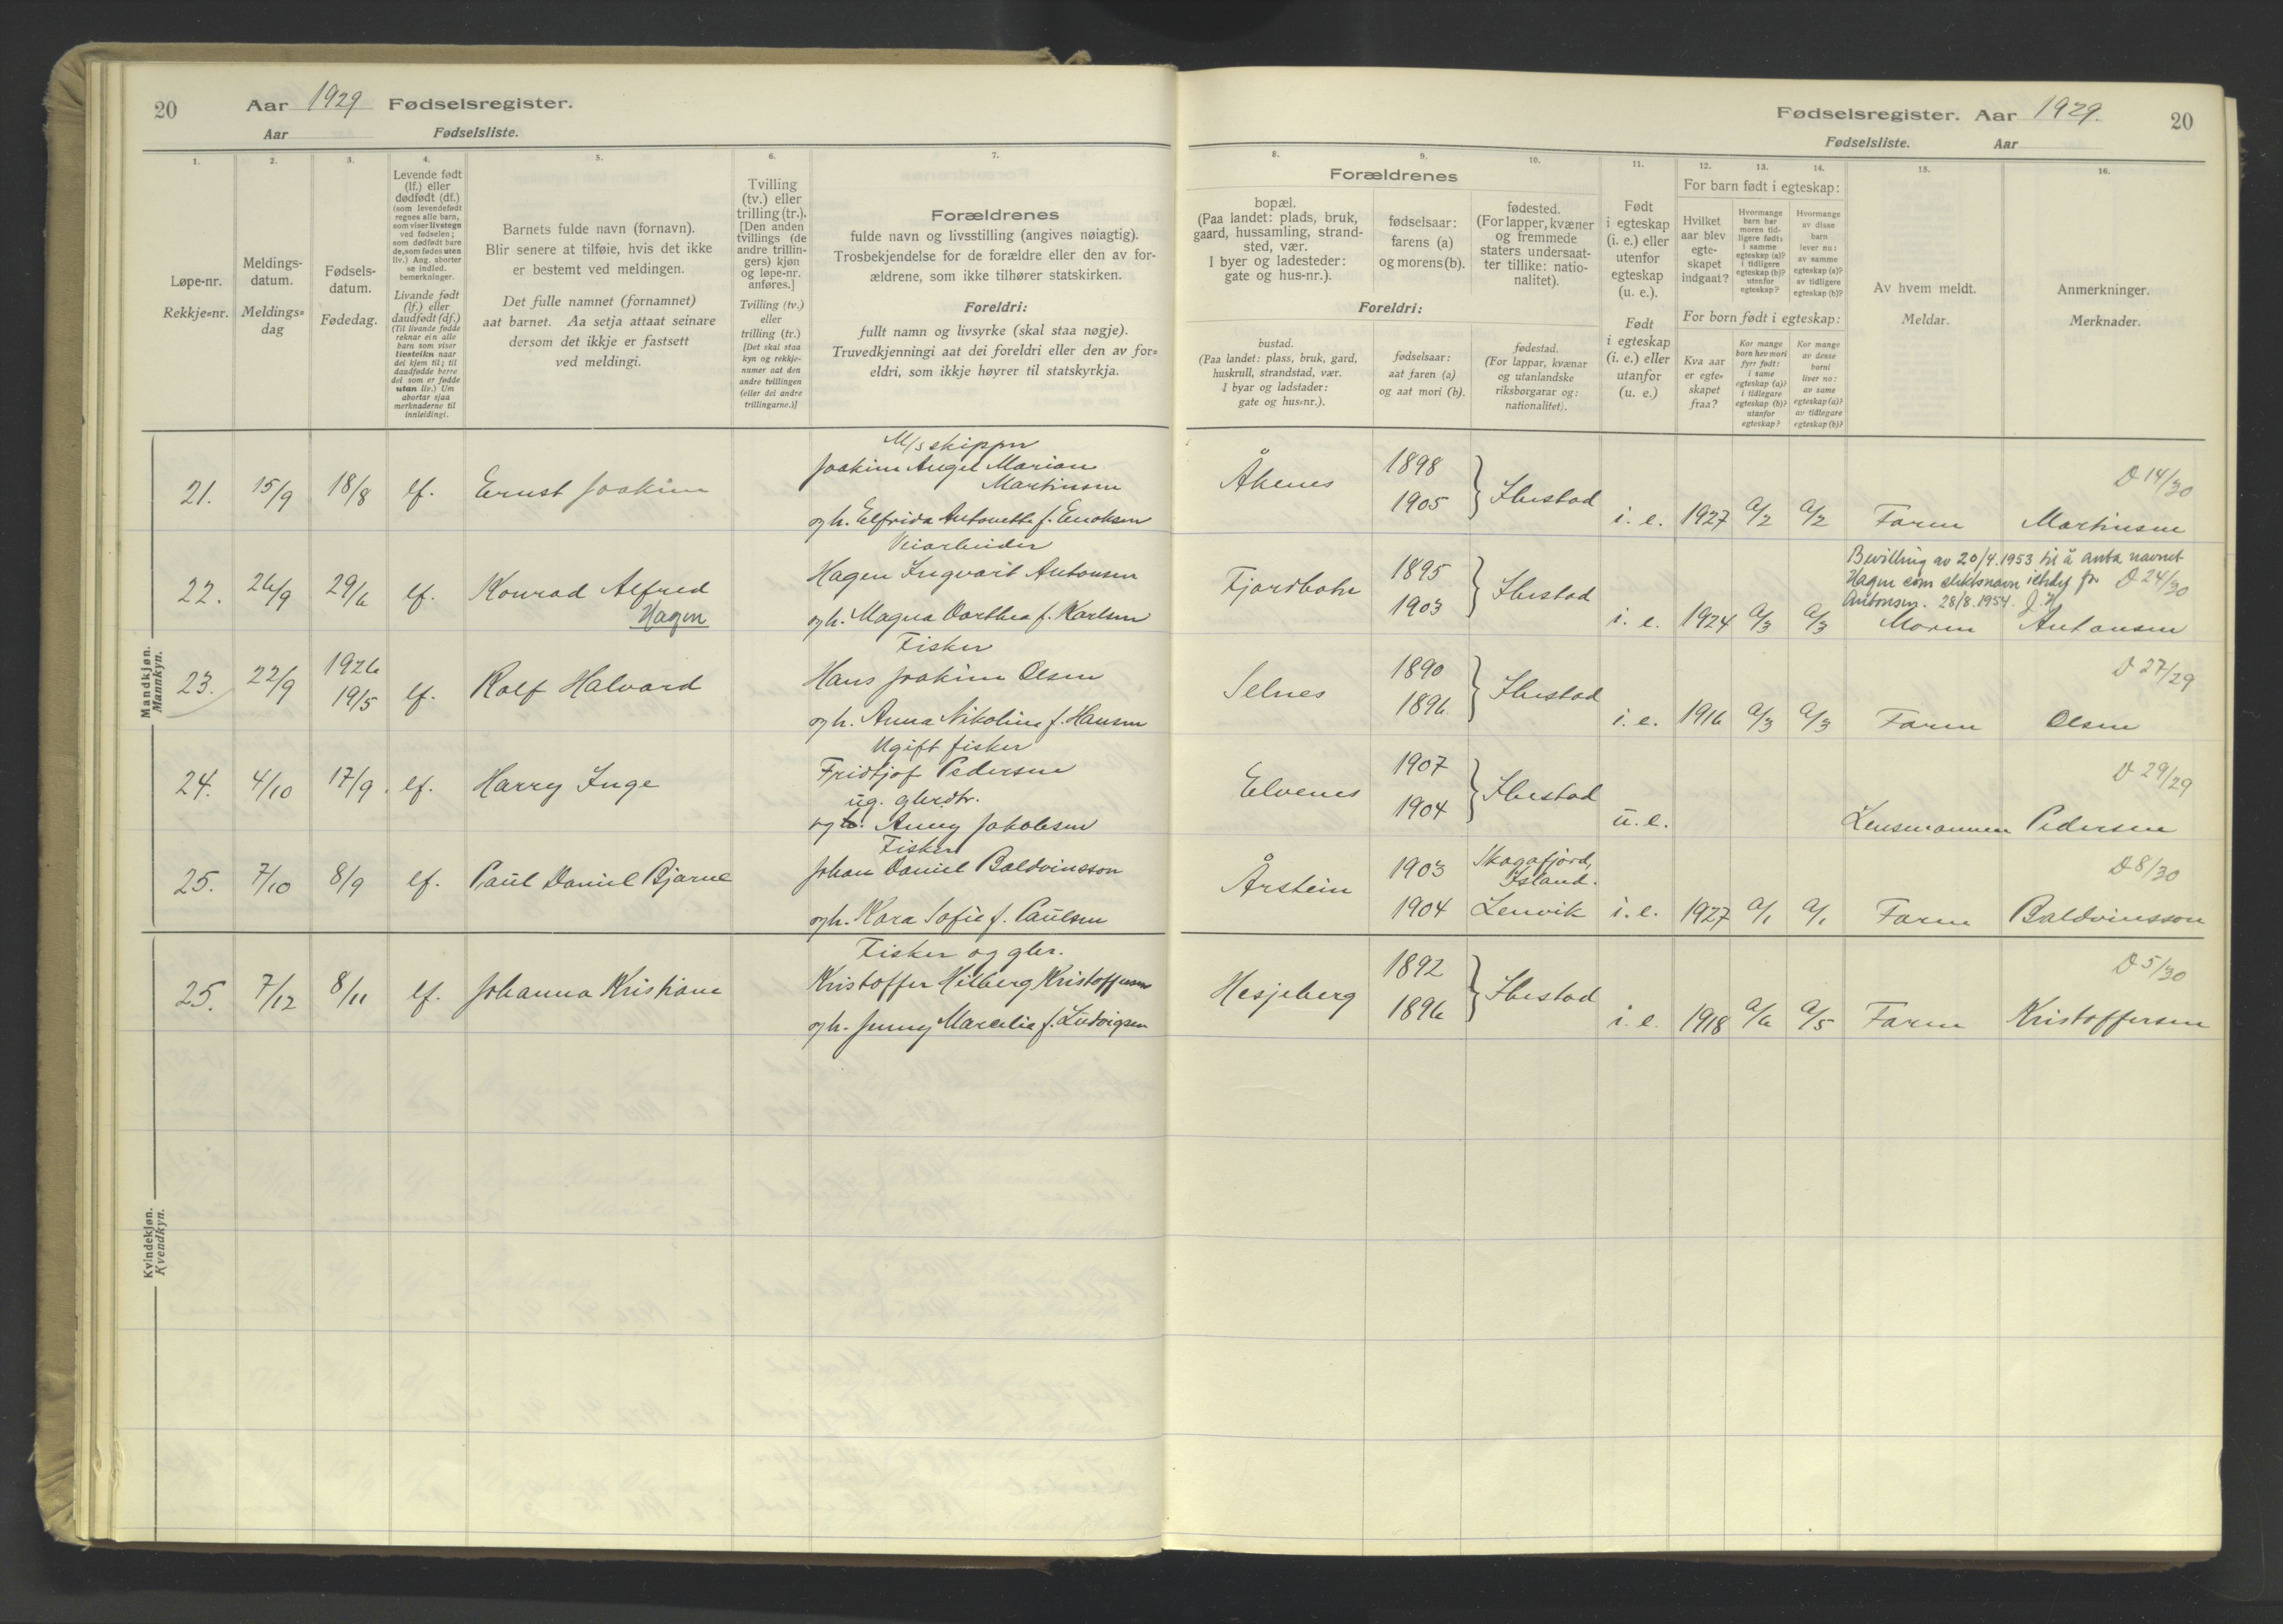 20 Aar 1929 Fødselsregister.
Aar Fødselsliste.
Fødselsregister. Aar 1929. 20
Fødselsliste. Aar
1. 2. 3. 4. 5. 6. 7.
Løpe-nr.
Rekkje=nr.
Meldings-
datum.
Meldings=
dag
Fødsels-
datum.
Fødedag.
Levende født
(lf.) eller
dødfødt (df.)
(som levendefødt
regnes alle barn,
som viser livstegn
ved fødselen;
som dødfødt bare
de, som fødes uten
liv.) Ang. aborter
se indled.
bemerkninger.
Livande født
(lf.) eller
daudfødt (df.)
(Til livande fødde
reknar ein alle
barn som viser
livsteikn naar
dei kjem til; til
daudfødde berre
dei som er fødde
utan liv.) Um
abortar sjaa
merknaderne til
innleidingi.
Barnets fulde navn (fornavn).
Blir senere at tilføie, hvis det ikke
er bestemt ved meldingen.
Det fulle namnet (fornamnet)
aat barnet. Aa setja attaat seinare
dersom det ikkje er fastsett
ved meldingi.
Tvilling
(tv.) eller
trilling (tr.).
[Den anden
tvillings (de
andre trillin-
gers) kjøn
og løpe-nr.
anføres.]
Tvilling (tv.)
eller
trilling (tr.)
[Det skal staa
kyn og rekkje-
numer aat den
andre tvillingen
(eller dei andre
trillingarne.)]
Forældrenes
fulde navn og livsstilling (angives nøiagtig).
Trosbekjendelse for de forældre eller den av for-
ældrene, som ikke tilhører statskirken.
Foreldri:
fullt namn og livsyrke (skal staa nøgje).
Truvedkjenningi aat dei foreldri eller den av for=
eldri, som ikkje høyrer til statskyrkja.
8. 9. 10. 11. 12. 13. 14. 15. 16.
Forældrenes
bopæl.
(Paa landet: plads, bruk,
gaard, hussamling, strand-
sted, vær.
I byer og ladesteder:
gate og hus-nr.).
fødselsaar:
farens (a)
og morens (b).
fødested.
(For lapper, kvæner
og fremmede
staters undersaat-
ter tillike: natio-
nalitet).
Foreldri:
bustad.
(Paa landet: plass, bruk, gard,
huskrull, strandstad, vær.
I byar og ladstader:
gate og hus=nr.).
fødselsaar:
aat faren (a)
og aat mori (b).
fødestad.
(For lappar, kvænar
og utanlandske
riksborgarar og:
nationalitet).
Født
i egteskap
(i. e.) eller
utenfor
egteskap
(u. e.).
Født
i egteskap
(i. e.) eller
utanfor
(u. e.)
For barn født i egteskap:
Hvilket
aar blev
egte-
skapet
indgaat?
Hvormange
barn har
moren tid-
ligere født:
i samme
egteskap (a)?
i tidligere
egteskap (b)?
utenfor
egteskap?
Hvormange
av disse
barn
lever nu:
av samme
egteskap (a)?
av tidligere
egteskap (b)?
For born født i egteskap:
Kva aar
er egte=
skapet
fraa?
Kor mange
born hev mori
fyrr født:
i same
egteskap (a)?
i tidlegare
egteskap (b)?
utanfor
egteskap?
Kor mange
av desse
borni
liver no:
av same
egteskap (a)?
av tidlegare
egteskap (b)?
Av hvem meldt.
Meldar.
Anmerkninger.
Merknader.
Mandkjøn.
Mannkyn.
M/s skipper
21. 15/9 18/8 lf. Ernst Joakim Joakim Angel Marian Martinsen
og h. Elfrida Antonette f. Enoksen
Åkenes 1898 1905 Ibestad i. e. 1927 a/2 a/2 Faren Martinsen D 14/30
Veiarbeider
22. 26/9 29/6 lf. Konrad Alfred Hagen Hagen Ingvart Antonsen
og h. Magna Dorthea f. Karlsen
Fjordbotn 1895 1903 Ibestad i. e. 1924 a/3 a/3 Moren Antonsen D 24/30
Bevilling av 20/4.1953 til å anta navnet
Hagen som slektsnavn istedet for
Antonsen. 28/8.1954. J.H
Fisker
23. 22/9 1926 19/5 lf. Rolf Halvard Hans Joakim Olsen
og h. Anna Nikolina f. Hansen
Selnes 1890 1896 Ibestad i. e. 1916 a/3 a/3 Faren Olsen D 27/29
Ugift fisker
24. 4/10 17/9. lf. Harry Inge Fridtjof Pedersen
ug. gbrdtr.
og h. Anny Jakobsen
Elvenes 1907 1904 Ibestad u. e. Lensmannen Pedersen D 29/29
Fisker
25. 7/10 8/9 lf. Paul Daniel Bjarne Johan Daniel Baldvinsson
og h. Kara Sofie f. Paulsen
Årstein 1903 Skagafjord, Island.
1904 Lenvik i. e. 1927 a/1 a/1 Faren Baldvinsson D 8/30
Kvindekjøn.
Kvendkyn.
Fisker og gbr.
25. 7/12 8/11 lf. Johanna Kristiane Kristoffer Hilberg Kristoffersen
og h. Jenny Marcelie f. Ludvigsen
Hesjeberg 1892 1896 Ibestad i. e. 1918 a/6 a/5 Faren Kristoffersen D 5/30